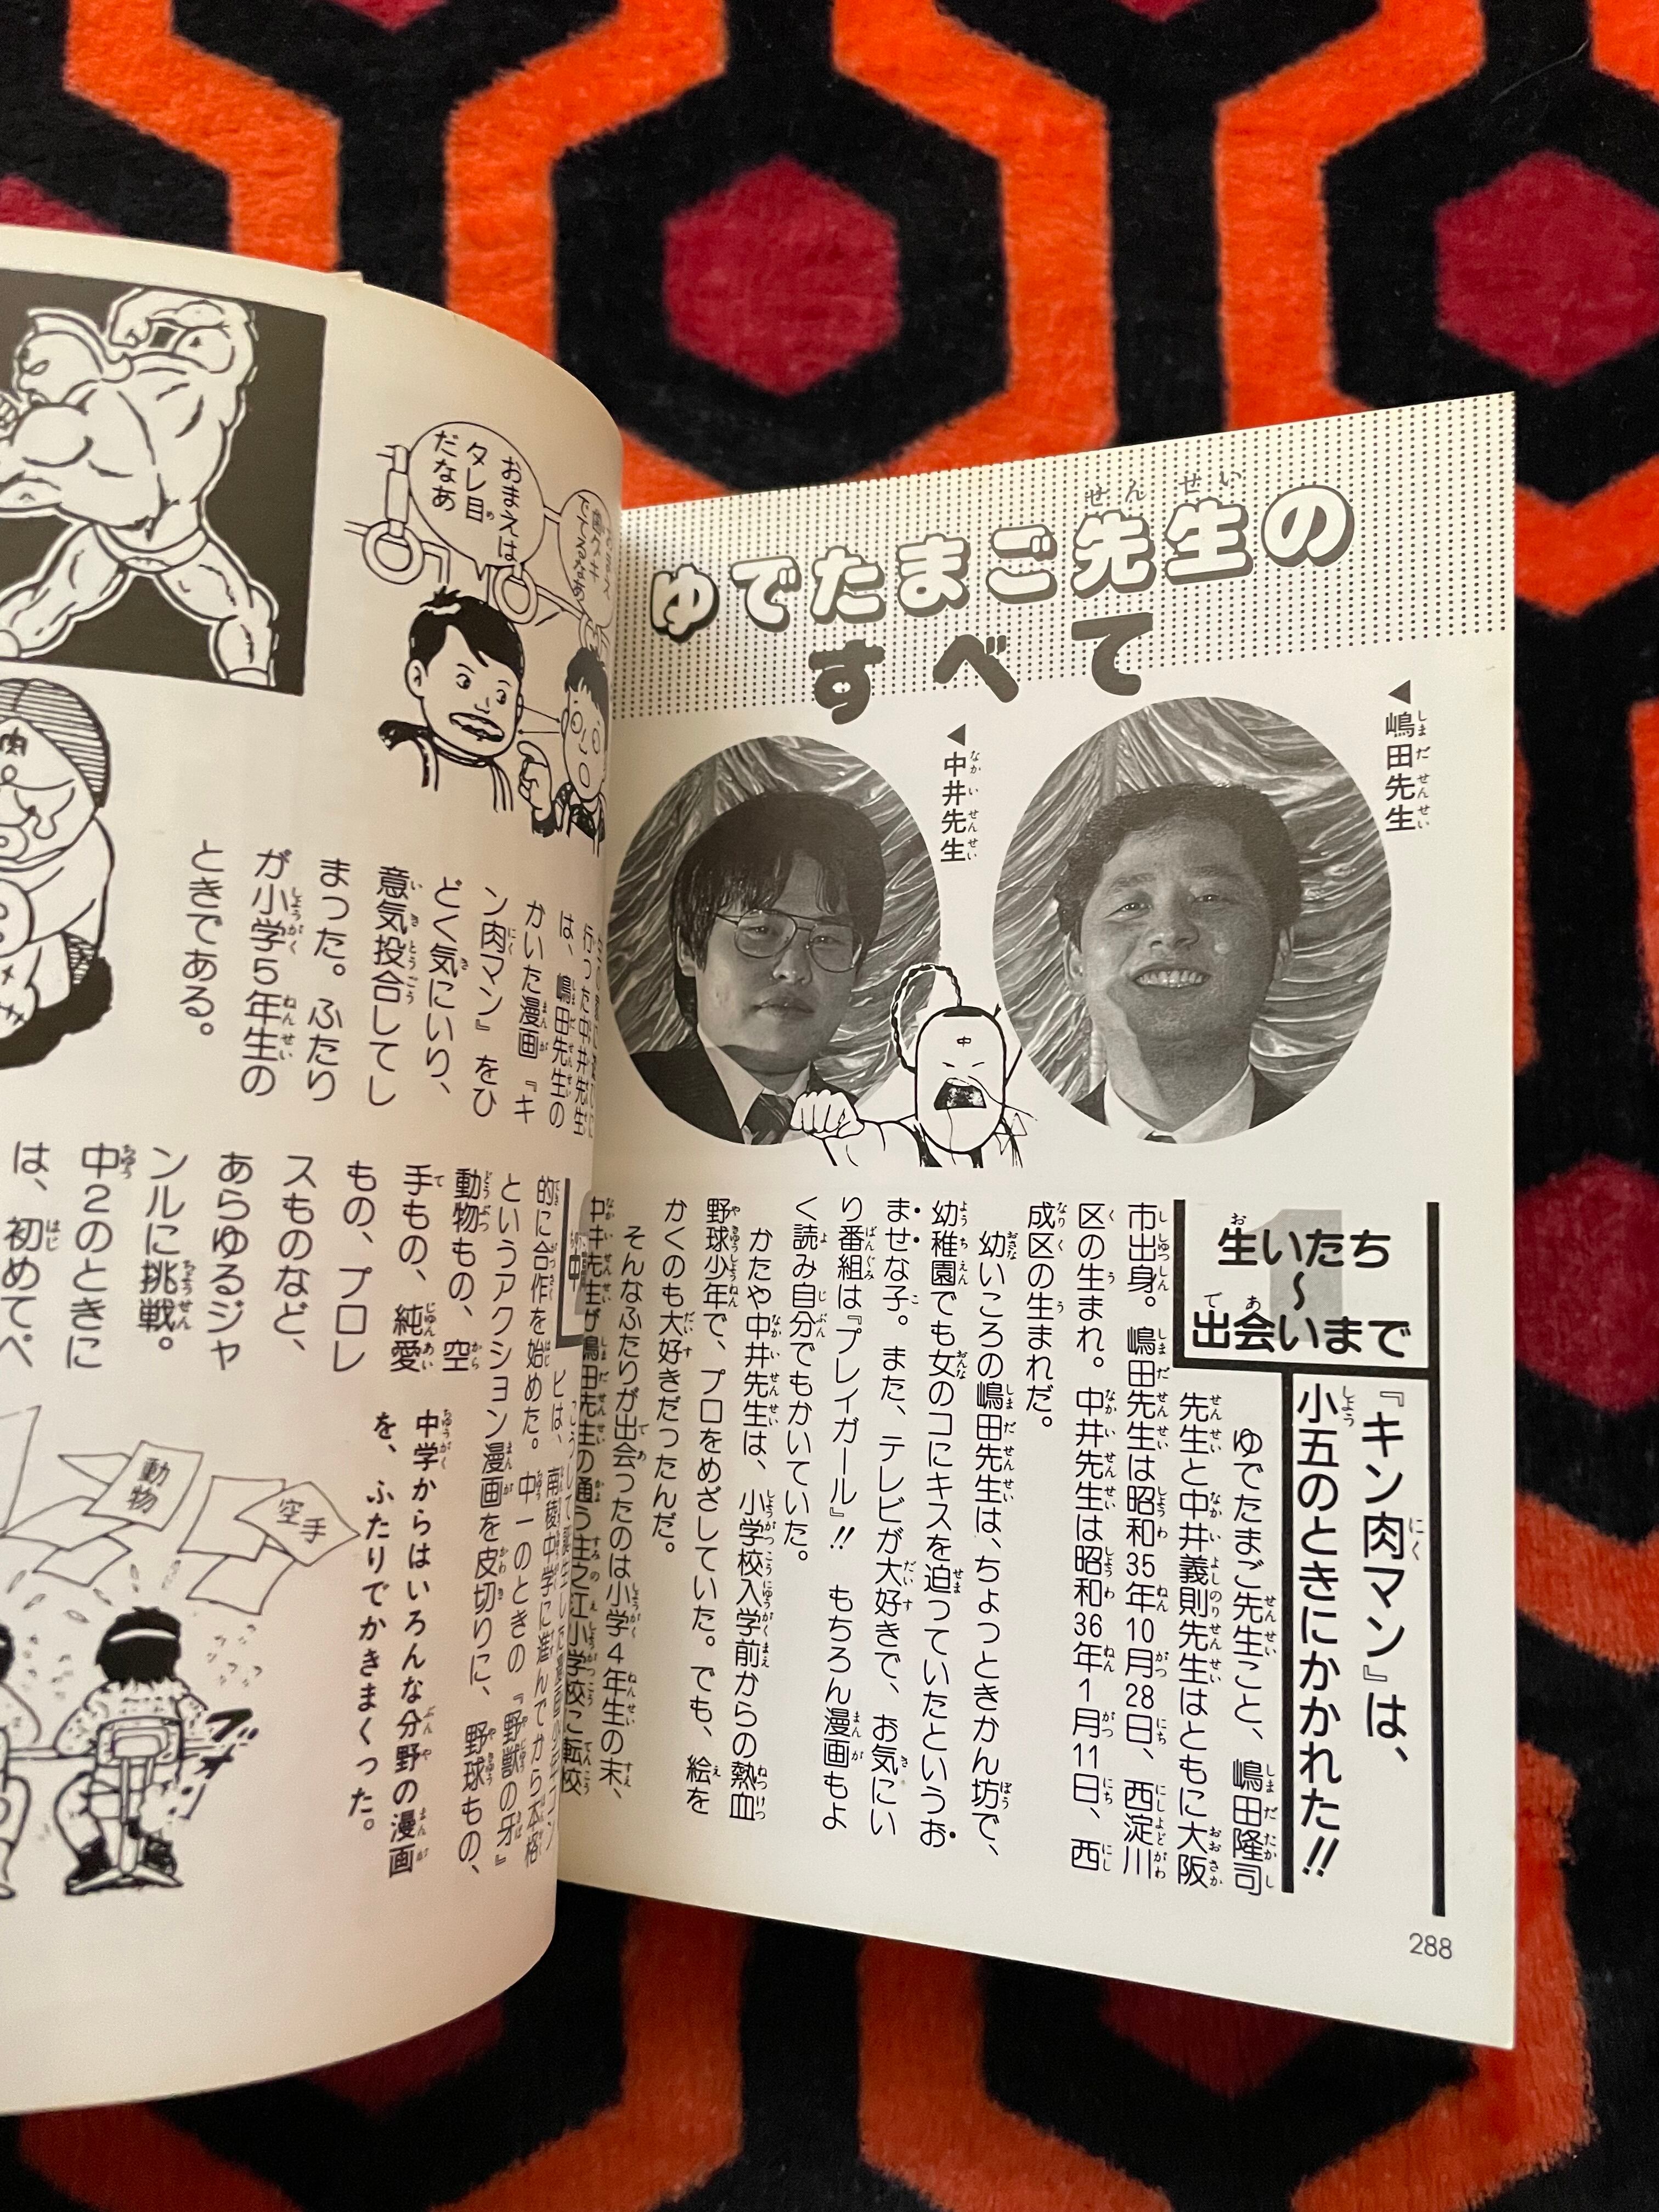 ゆでたまご先生の
すべて
◀嶋田先生
◀中井先生
中
1
生いたち
〜
出会いまで
『キン肉マン』は、
小五のときにかかれた!!
ゆでたまご先生こと、嶋田隆司
先生と中井義則先生はともに大阪
市出身。嶋田先生は昭和35年10月28日、西淀川
区の生まれ。中井先生は昭和36年1月11日、西
成区の生まれだ。
幼いころの嶋田先生は、ちょっときかん坊で、
幼稚園でも女のコにキスを迫っていたというお
ませな子。また、テレビが大好きで、お気にい
り番組は『プレイガール』!! もちろん漫画もよ
く読み自分でもかいていた。
かたや中井先生は、小学校入学前からの熱血
野球少年で、プロをめざしていた。でも、絵を
かくのも大好きだったんだ。
そんなふたりが出会ったのは小学4年生の末、
中井先生が嶋田先生の通う住之江小学校に転校
288
おまえは
タレ目
だなあ
行った中井先生
は、嶋田先生の
かいた漫画『キ
ン肉マン』をひ
どく気にいり、
意気投合してし
まった。ふたり
が小学5年生の
ときである。
肉
南稜中学に進んでから本格
的に合作を始めた。中一のときの『野獣の牙』
というアクション漫画を皮切りに、野球もの、
動物もの、空
手もの、純愛
もの、プロレ
スものなど、
あらゆるジャ
ンルに挑戦。
中2のときに
は、初めてペ
中学からはいろんな分野の漫画
を、ふたりでかきまくった。
動物
空手